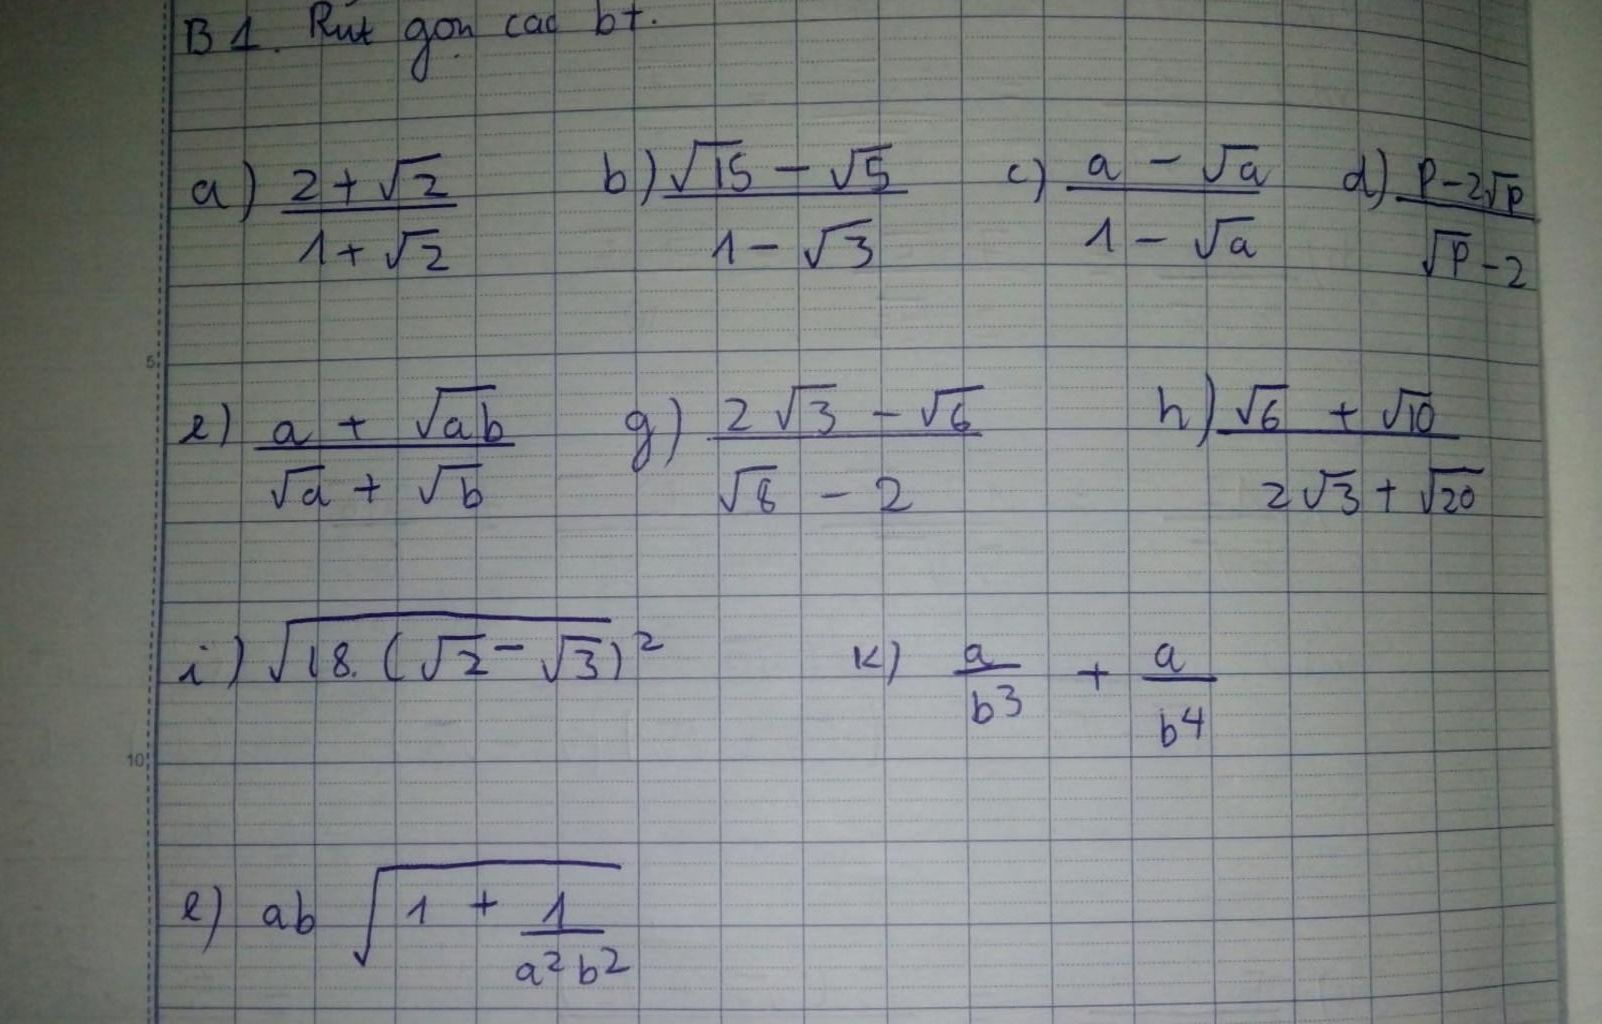 B1. Rút gọn các bt.
a) (2 + √2)/(1 + √2) b) (√15 − √5)/(1 − √3) c) (a − √a)/(1 − √a) d) (p − 2√p)/(√p − 2)
e) (a + √ab)/(√a + √b) g) (2√3 − √6)/(√8 − 2) h) (√6 + √10)/(2√3 + √20)
5
i) √18.(√2 − √3)² k) a/b³ + a/b⁴
10
l) ab √(1 + 1/(a²b²))